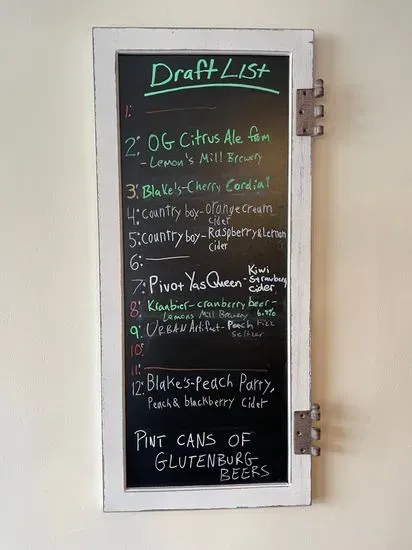 Draft List
1:
2: OG Citrus Ale from
- Lemon's Mill Brewery
3: Blake's - Cherry Cordial
4: Country boy - orange cream
cider
5: Country boy - Raspberry & Lemon
Cider
6:
7: Pivot Yas Queen - Kiwi
Strawberry
cider
8: Kranbier - cranberry beer -
Lemons Mill Brewery 6.9%
9: URBAN Artifact - Peach Fizz
seltzer
10:
11:
12: Blake's - peach Party,
Peach & blackberry cider
PINT CANS OF
GLUTENBURG
BEERS